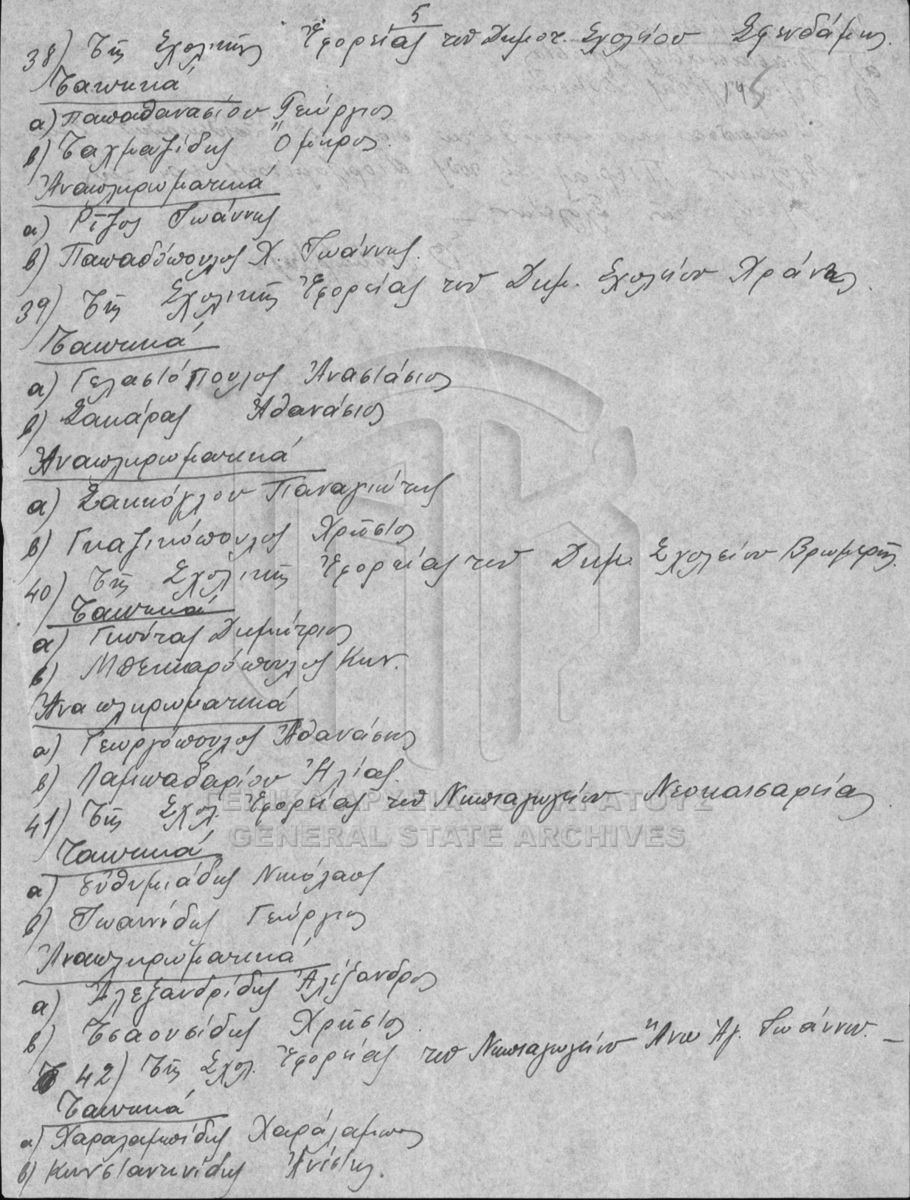 5
38) Τῆς Σχολικῆς Ἐφορείας τοῦ Δημοτ. Σχολείου Σφενδάμης.
Τακτικά
α) Παπαθανασίου Γεώργιος
β) Ταχματζίδης Ὅμηρος.
Ἀναπληρωματικά
α) Ρίζος Ἰωάννης
β) Παπαδόπουλος Χ. Ἰωάννης.
39) Τῆς Σχολικῆς Ἐφορείας τοῦ Δημ. Σχολείου Χράνης.
Τακτικά
α) Γελασιόπουλος Ἀναστάσιος
β) Σακάρας Ἀθανάσιος
Ἀναπληρωματικά
α) Σακκόγλου Παναγιώτης
β) Γκαζικόπουλος Χρῆστος
40) Τῆς Σχολικῆς Ἐφορείας τοῦ Δημ. Σχολείου Βρωμερῆς.
Τακτικά
α) Γκότας Δημήτριος
β) Μπεκιαρόπουλος Κων.
Ἀναπληρωματικά
α) Γεωργόπουλος Ἀθανάσιος
β) Λαμπαδαρίου Ἠλίας.
41) Τῆς Σχολ. Ἐφορείας τοῦ Νηπιαγωγείου Νεοκαισαρείας.
ΓΕΝΙΚΑ ΑΡΧΕΙΑ ΤΟΥ ΚΡΑΤΟΥΣ
GENERAL STATE ARCHIVES
Τακτικά
α) Εὐθυμιάδης Νικόλαος
β) Ἰωαννίδης Γεώργιος
Ἀναπληρωματικά
α) Ἀλεξανδρίδης Ἀλέξανδρος
β) Τσαουσίδης Χρῆστος.
42) Τῆς Σχολ. Ἐφορείας τοῦ Νηπιαγωγείου Ἄνω Ἁγ. Ἰωάννου. –
Τακτικά
α) Χαραλαμπίδης Χαράλαμπος
β) Κωνσταντινίδης Ἀνέστης.